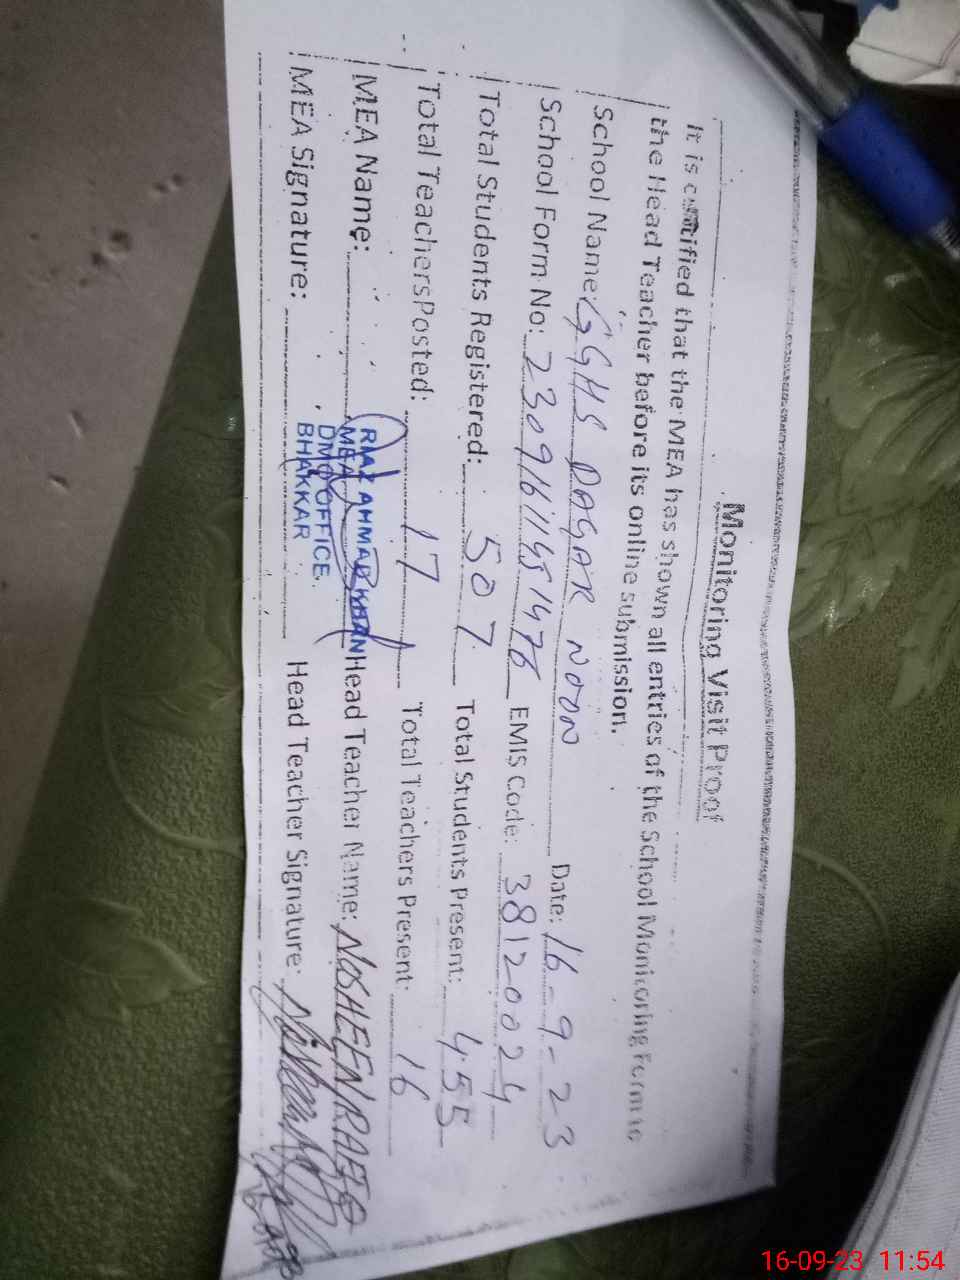 Monitoring Visit Proof
It is certified that the MEA has shown all entries of the School Monitoring Form to
the Head Teacher before its online submission.
School Name: GGHS DAGAR NOON Date: 16-9-23
School Form No: EMIS Code: 38120024
Total Students Registered: 507 Total Students Present: 455
Total Teachers Posted: 17 Total Teachers Present: 16
MEA Name: RIAZ AHMAD KHAN Head Teacher Name: NOSHEEN RAFIQ
MEA Signature: MEA DMO OFFICE Head Teacher Signature:
BHAKKAR
16-09-23 11:54